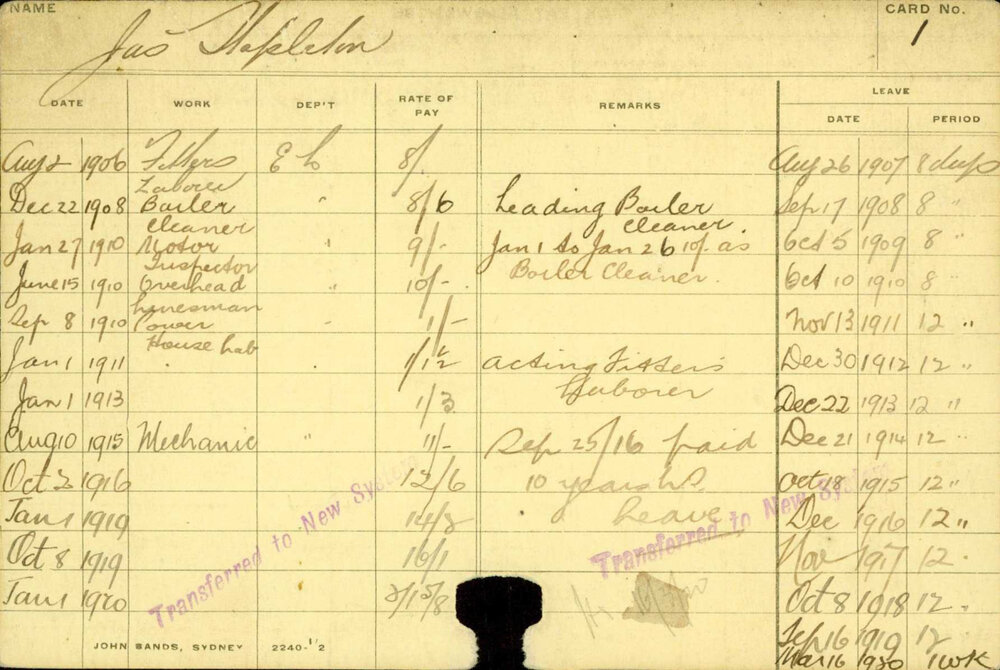 NAME
Jas Stapleton
CARD No.
1
DATE WORK DEP'T RATE OF PAY REMARKS LEAVE
DATE PERIOD
Aug 2 1906 Fitters E L 8/. Aug 26 1907 8 days
Laborer
Dec 22 1908 Boiler " 8/6 Leading Boiler Sep 17 1908 8 "
Cleaner Cleaner.
Jan 27 1910 Motor " 9/- Jan 1 to Jan 26 10/. as Oct 5 1909 8 "
Inspector Boiler Cleaner.
June 15 1910 Overhead " 10/- Oct 10 1910 8 "
Linesman
Sep 8 1910 Power " 1/- Nov 13 1911 12 "
House Lab
Jan 1 1911 Acting Fitters Dec 30 1912 12 "
Laborer
Jan 1 1913 1/3 Dec 22 1913 12 "
Aug 10 1915 Mechanic " 11/- Sep 25/16 paid Dec 21 1914 12 "
Oct 2 1916 12/6 10 years Leave Oct 18 1915 12 "
Jan 1 1919 14/8 Dec 1916 12 "
Oct 8 1919 16/1 Nov 1917 12 "
Jan 1 1920 Oct 8 1918 12 "
Sep 16 1919 12
Mar 16 1920 1 wk
Transferred to New System
Transferred to New System
JOHN SANDS, SYDNEY 2240-1/2